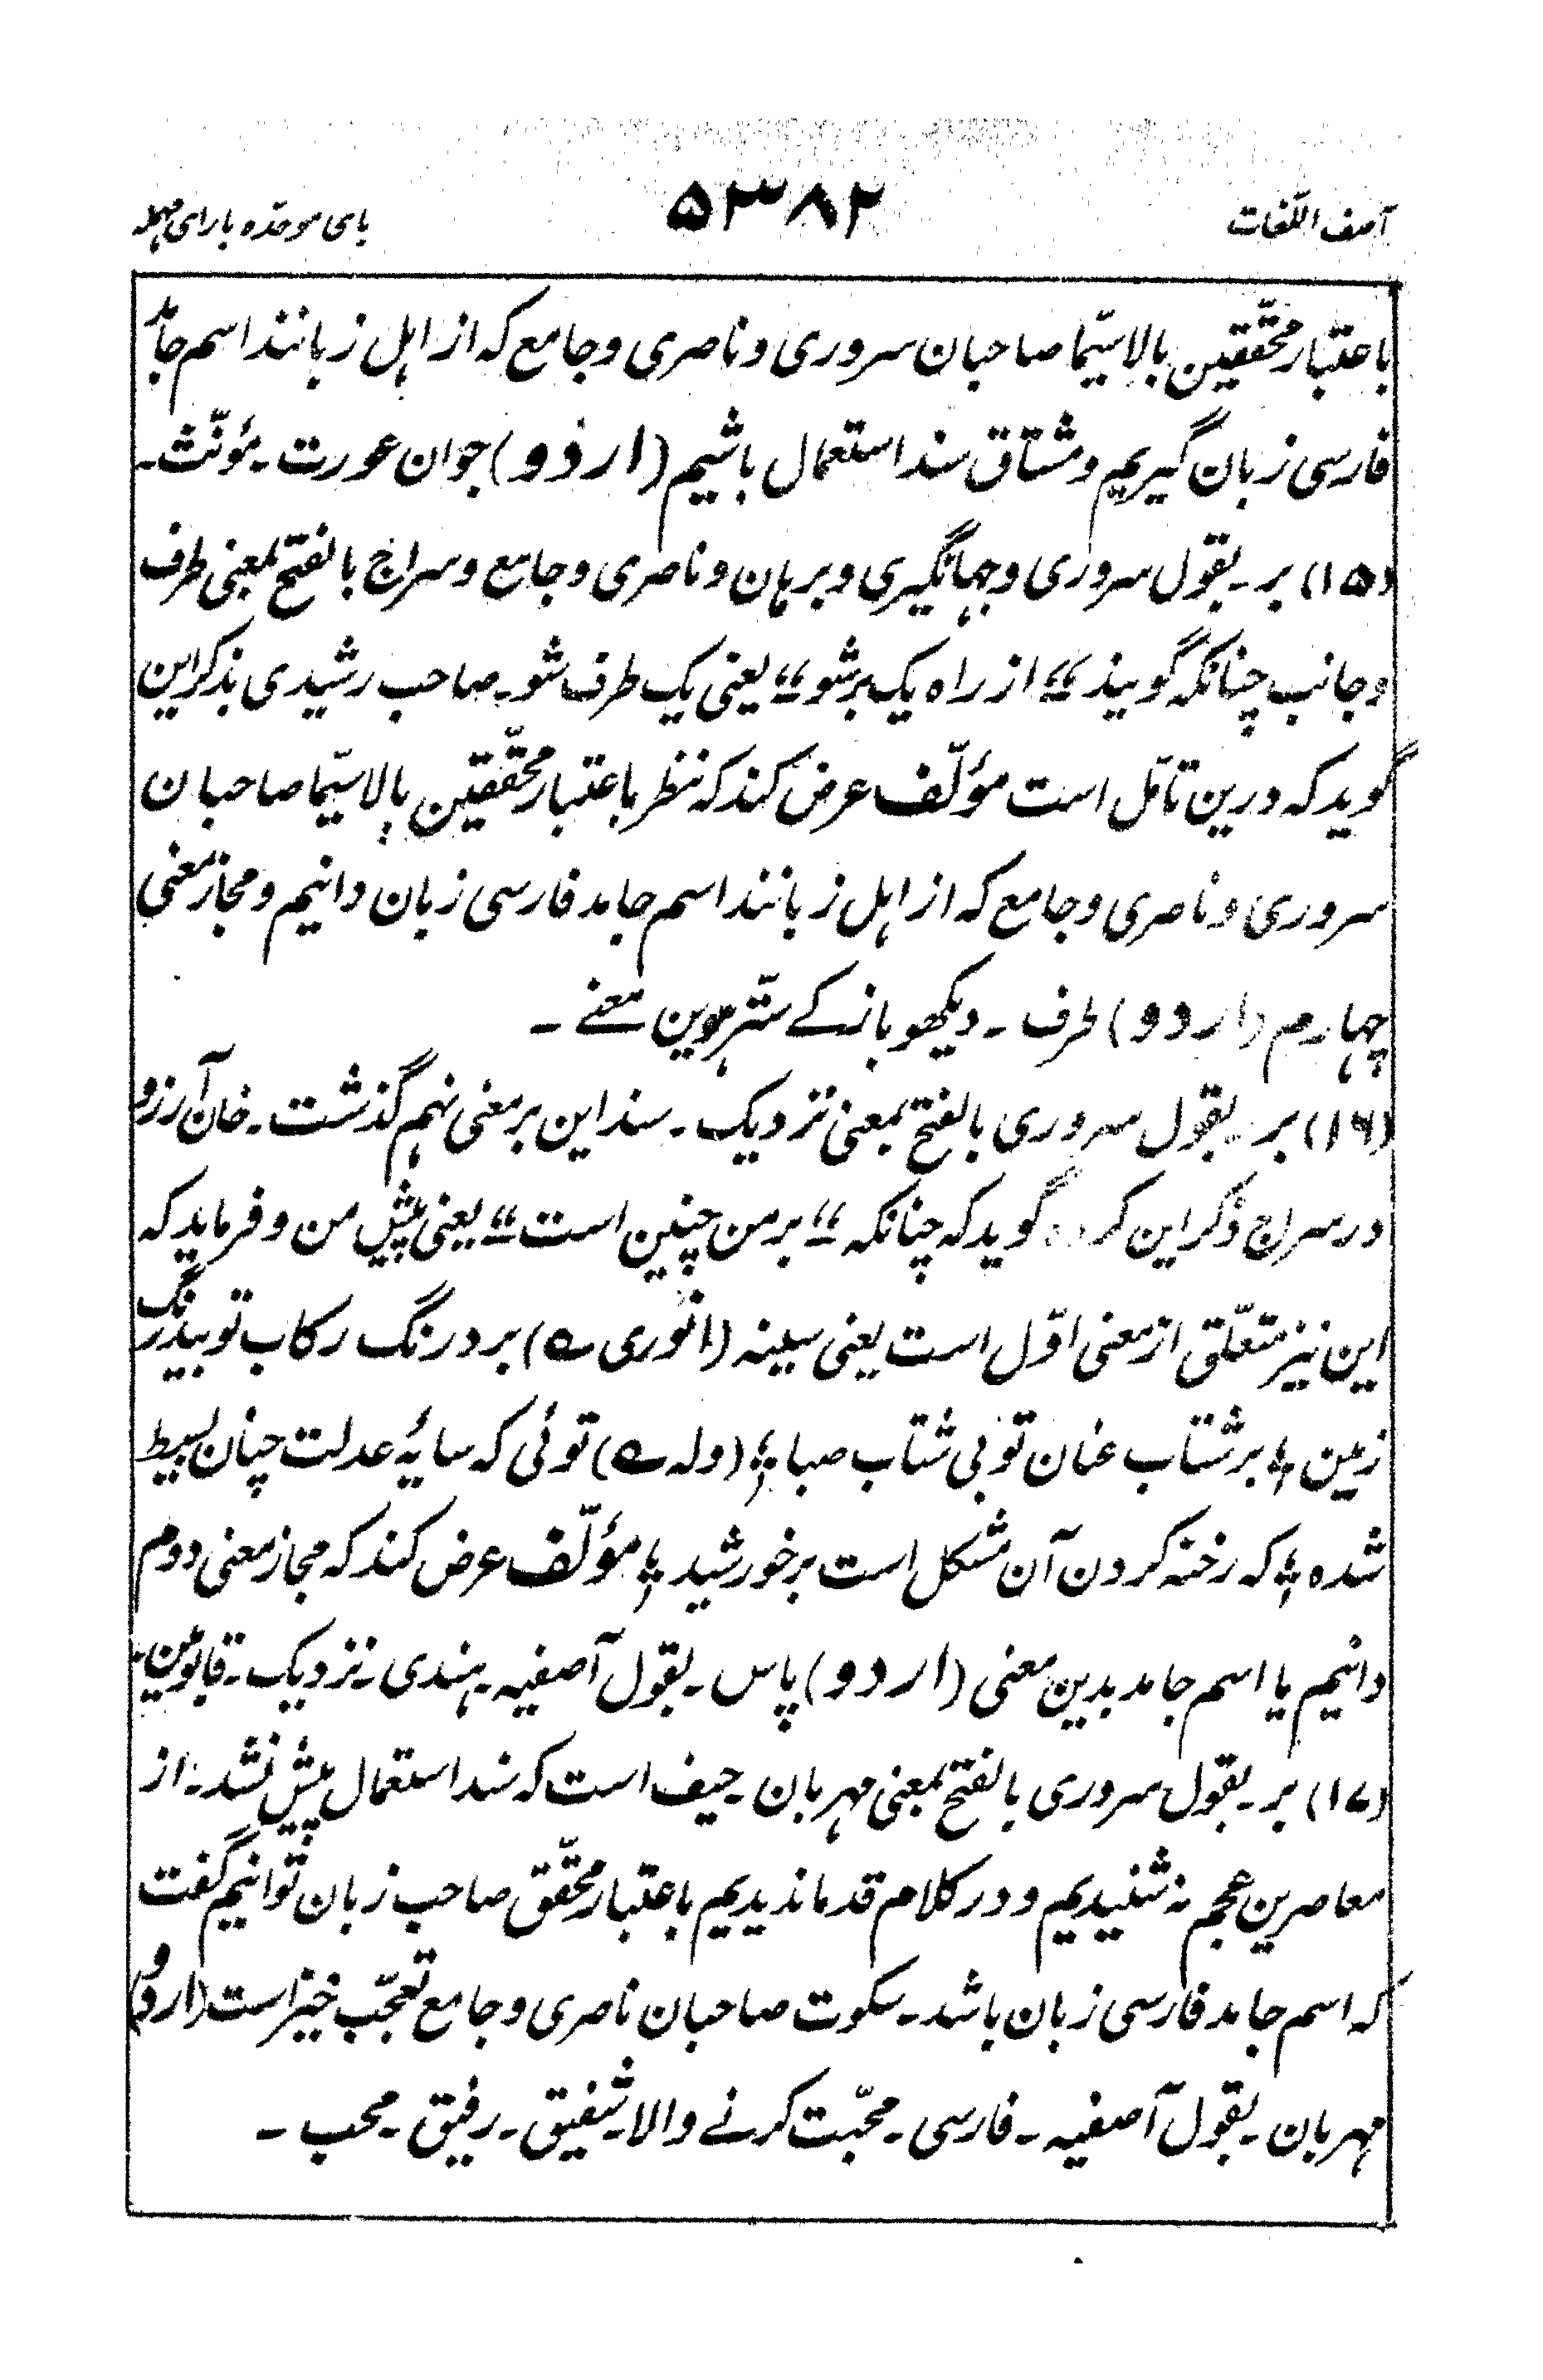 آصف اللّغات
۵۳۸۲
بای موحّده با رای مهمله
باعتبار محقّقین بالا سیّما صاحبان سروری و ناصری و جامع که از اہل زبانند اسم جامد
فارسی زبان گیریم و مشتاق سند استعمال باشیم (اردو) جوان عورت ۔ مؤنّث ۔
(۱۵) بر ۔ بقول سروری و جہانگیری و برہان و ناصری و جامع و سراج بالفتح بمعنی طرف
و جانب چنانکہ گویند ؛؛ از راہ یک بر شو ؛؛ یعنی یک طرف شو ۔ صاحب رشیدی بذکر این
گوید کہ درین تامّل است مؤلّف عرض کند کہ نظر باعتبار محقّقین بالا سیّما صاحبان
سروری و ناصری و جامع کہ از اہل زبانند اسم جامد فارسی زبان دانیم و مجاز معنی
چہارم (اردو) طرف ۔ دیکھو بار کے سترہوین معنے ۔
(۱۶) بر ۔ بقول سروری بالفتح بمعنی نزدیک ۔ سند این بر معنی نہم گذشت ۔ خان آرزو
در سراج ذکر این کردہ گوید کہ چنانکہ ؛؛ بر من چنین است ؛؛ یعنی پیش من و فرماید کہ
این نیز متعلّق از معنی اوّل است یعنی سینہ (انوری ؎) بر درنگ رکاب تو بیدرنگ
زمین ؛ بر شتاب عنان تو بی شتاب صبا ؛ (ولہ ؎) توئی کہ سایۂ عدلت چنان بسیط
شدہ ؛ کہ رخنہ کردن آن مشکل است بر خورشید ؛ مؤلّف عرض کند کہ مجاز معنی دوم
دانیم یا اسم جامد بدین معنی (اردو) پاس ۔ بقول آصفیہ ۔ ہندی ۔ نزدیک ۔ قابو مین ۔
(۱۷) بر ۔ بقول سروری بالفتح بمعنی مہربان ۔ حیف است کہ سند استعمال پیش نشد ۔ از
معاصرین عجم نہ شنیدیم و در کلام قدما ندیدیم باعتبار محقّق صاحب زبان توانیم گفت
کہ اسم جامد فارسی زبان باشد ۔ سکوت صاحبان ناصری و جامع تعجّب خیز است (اردو)
مہربان ۔ بقول آصفیہ ۔ فارسی ۔ محبّت کرنے والا ۔ شفیق ۔ رفیق ۔ محب ۔